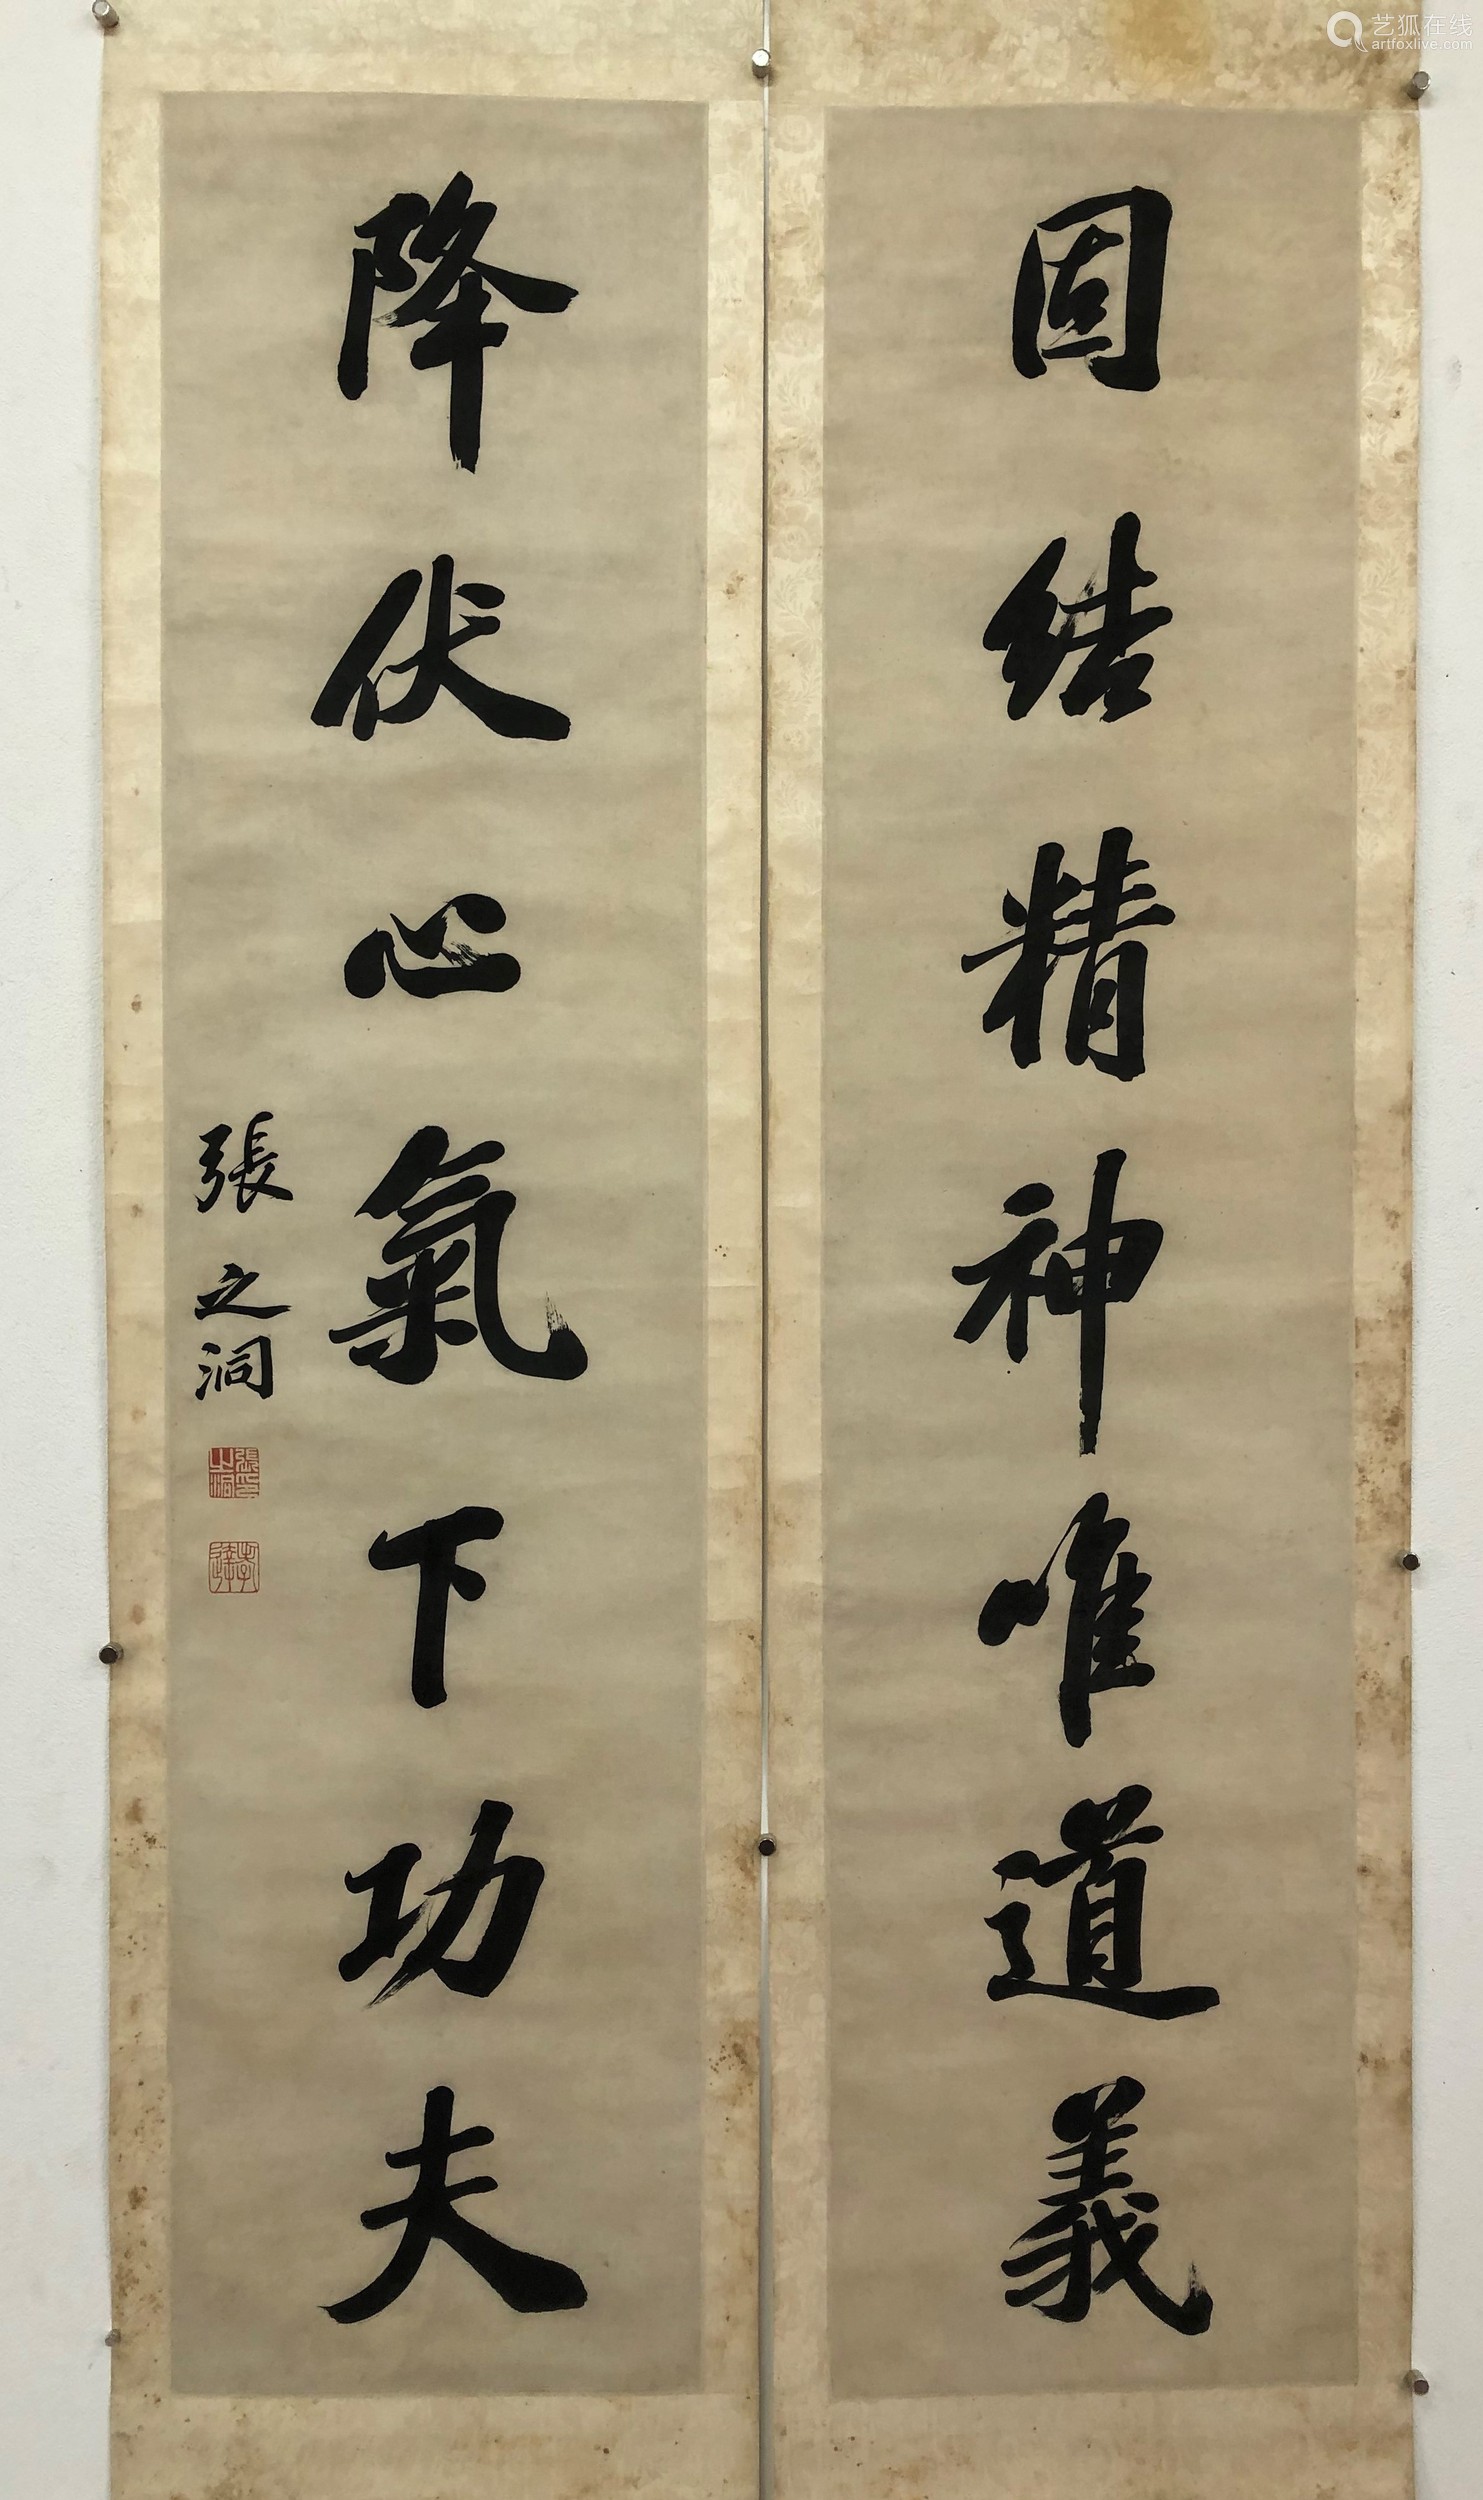 固結精神唯道義
降伏心氣下功夫
張之洞
張之洞印
孝達
艺狐在线
artfoxlive.com